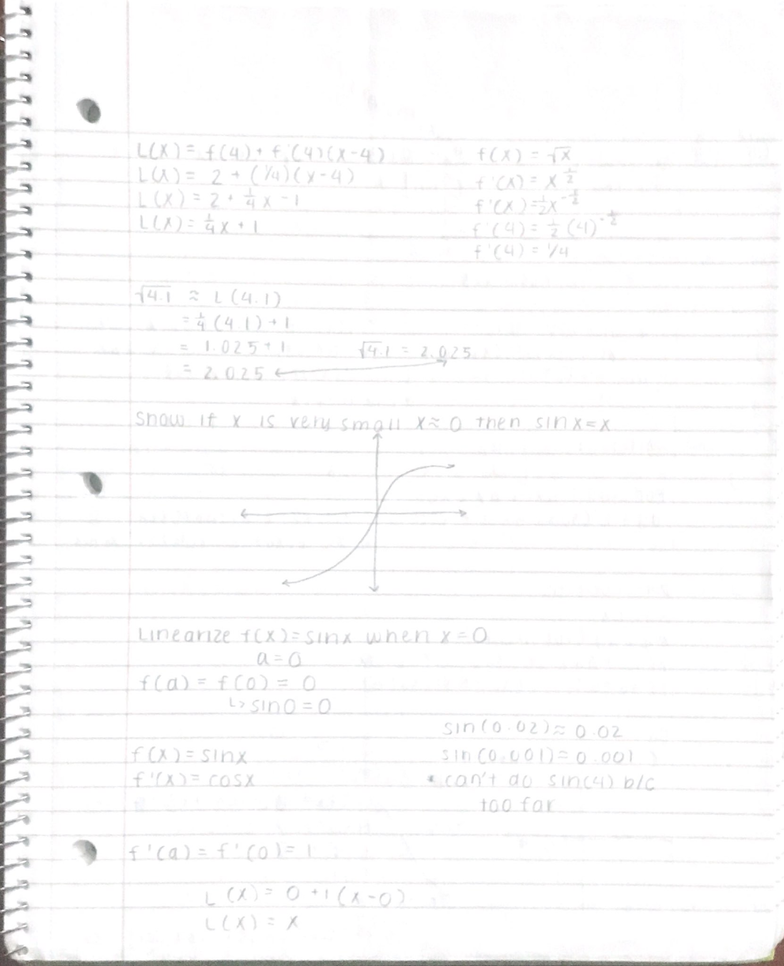 L(x) = f(4) + f'(4)(x-4)
L(x) = 2 + (1/4)(x-4)
L(x) = 2 + 1/4 x - 1
L(x) = 1/4 x + 1
f(x) = √x
f'(x) = x^1/2
f'(x) = 1/2 x^-1/2
f'(4) = 1/2 (4)^-1/2
f'(4) = 1/4
√4.1 ≈ L(4.1)
= 1/4 (4.1) + 1
= 1.025 + 1
= 2.025
√4.1 = 2.025
Show if x is very small x≈0 then sinx=x
Linearize f(x)=sinx when x=0
a=0
f(a) = f(0) = 0
↳ sin0=0
f(x)=sinx
f'(x)=cosx
sin(0.02)≈0.02
sin(0.001)≈0.001
• can't do sin(4) b/c
too far
f'(a) = f'(0) = 1
L(x) = 0 + 1(x-0)
L(x) = x